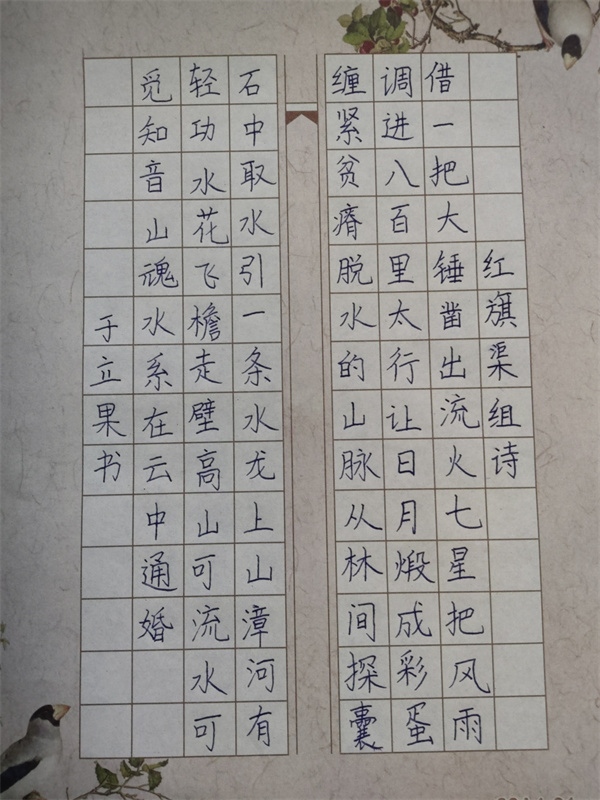 红旗渠组诗
借一把大锤凿出流火七星把风雨
调进八百里太行让日月煅成彩蛋
缠紧贫瘠脱水的山脉从林间探囊
石中取水引一条水龙上山漳河有
轻功水花飞檐走壁高山可流水可
觅知音山魂水系在云中通婚
于立果书